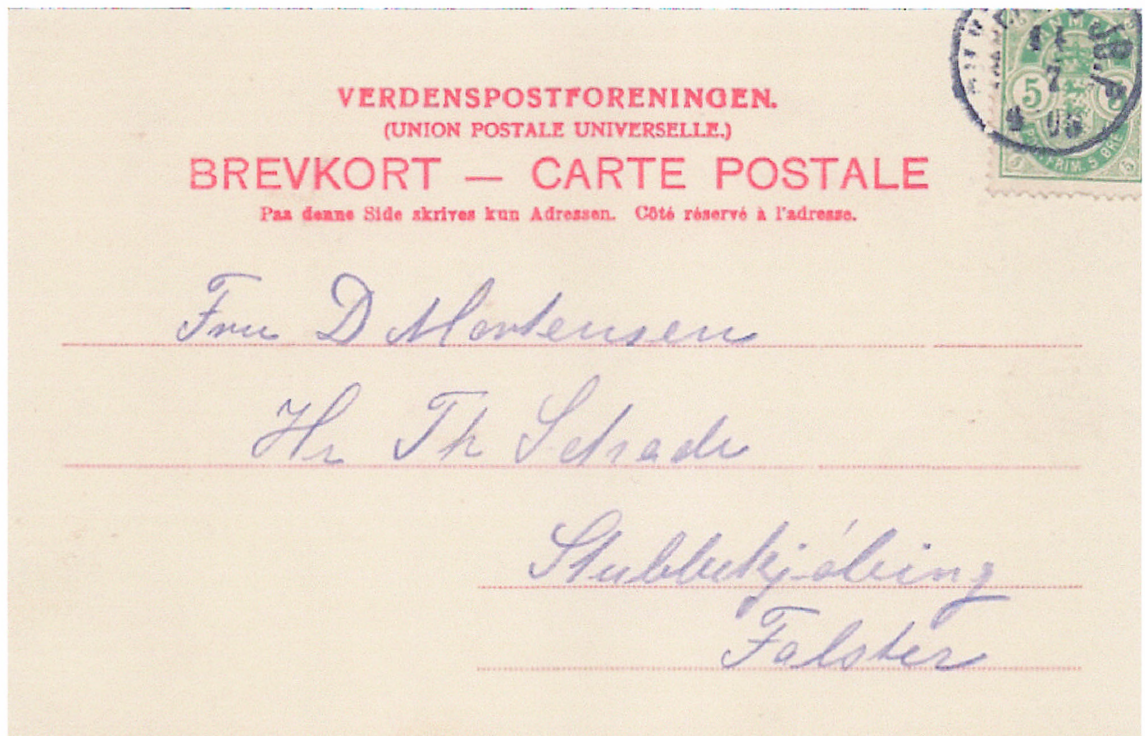 VERDENSPOSTFORENINGEN.
(UNION POSTALE UNIVERSELLE.)
BREVKORT — CARTE POSTALE
Paa denne Side skrives kun Adressen. Côté réservé à l'adresse.
11
7
5
5 5
Fru D Mortensen
Hr Th Schade
Stubbekjóbing
Falster